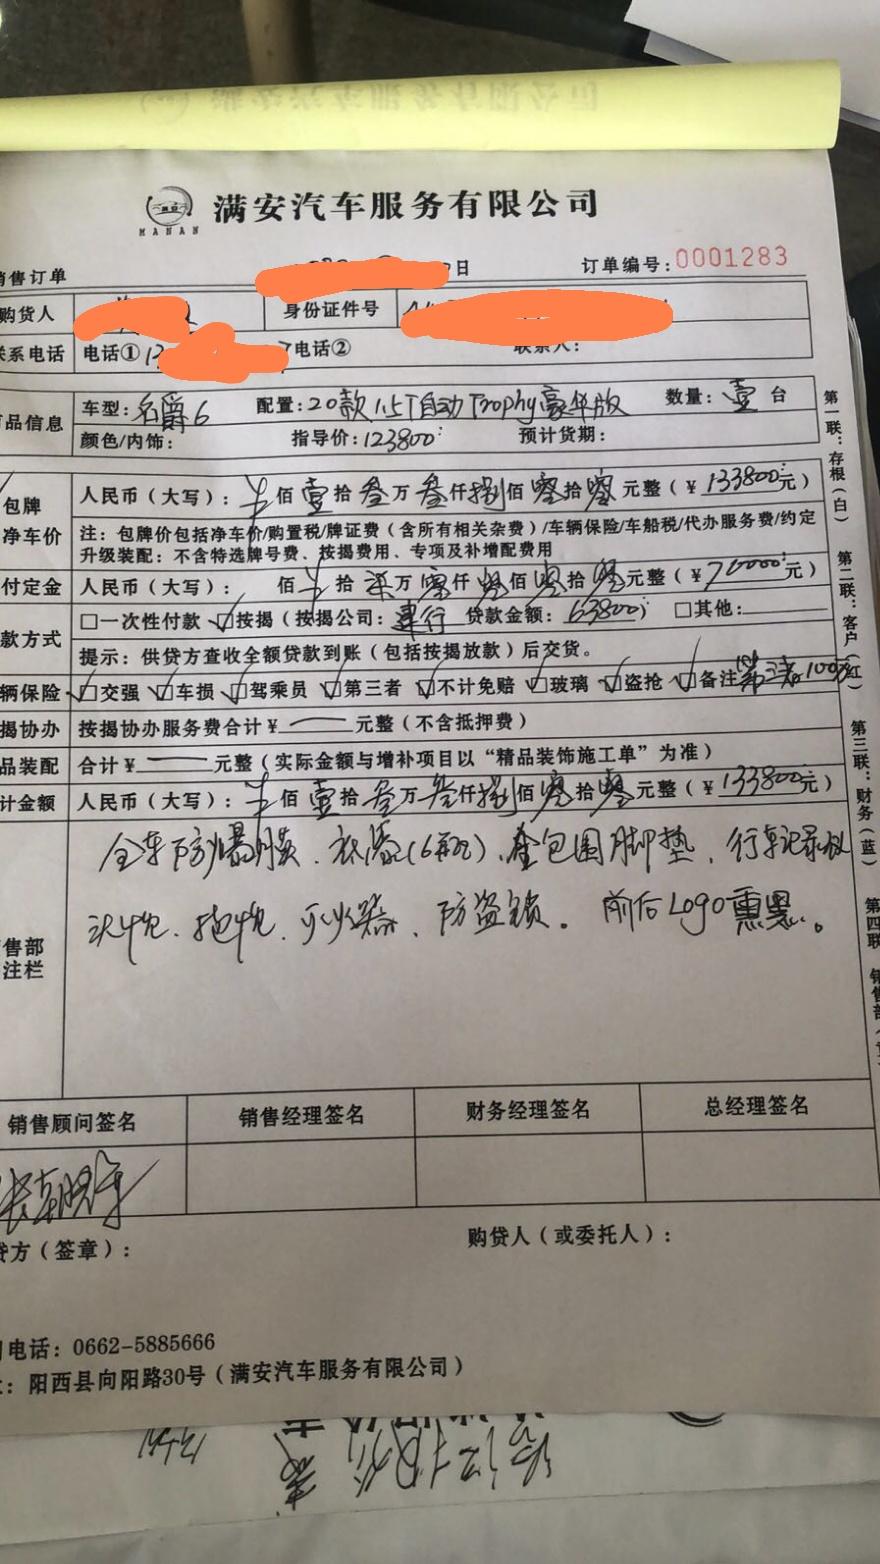 满安汽车服务有限公司
MANAN
销售订单 日 订单编号:0001283
购货人 身份证件号
联系电话 电话① 电话② 联系人:
商品信息 车型:名爵6 配置:20款1.5T自动Trophy豪华版 数量:壹台
颜色/内饰: 指导价:123800 预计货期:
包牌 人民币(大写): 佰壹拾叁万叁仟捌佰零拾零元整(¥133800元)
净车价 注:包牌价包括净车价/购置税/牌证费(含所有相关杂费)/车辆保险/车船税/代办服务费/约定
升级装配:不含特选牌号费、按揭费用、专项及补增配费用
付定金 人民币(大写): 佰 拾柒万零仟零佰零拾零元整(¥70000元)
款方式 □一次性付款 ☑按揭(按揭公司:建行 贷款金额:63800) □其他:
提示:供贷方查收全额贷款到账(包括按揭放款)后交货。
辆保险 ☑交强 ☑车损 ☑驾乘员 ☑第三者 ☑不计免赔 ☑玻璃 ☑盗抢 ☑备注 第三者100万
揭协办 按揭协办服务费合计¥ 元整(不含抵押费)
品装配 合计¥ 元整(实际金额与增补项目以“精品装饰施工单”为准)
计金额 人民币(大写): 佰壹拾叁万叁仟捌佰零拾零元整(¥133800元)
全车防爆膜、 全包围脚垫、行车记录仪
灭火器、防盗锁。前后Logo熏黑。
售部
注栏
销售顾问签名 销售经理签名 财务经理签名 总经理签名
贷方(签章): 购贷人(或委托人):
电话:0662-5885666
:阳西县向阳路30号(满安汽车服务有限公司)
第一联:存根(白)
第二联:客户(红)
第三联:财务(蓝)
第四联 销售部